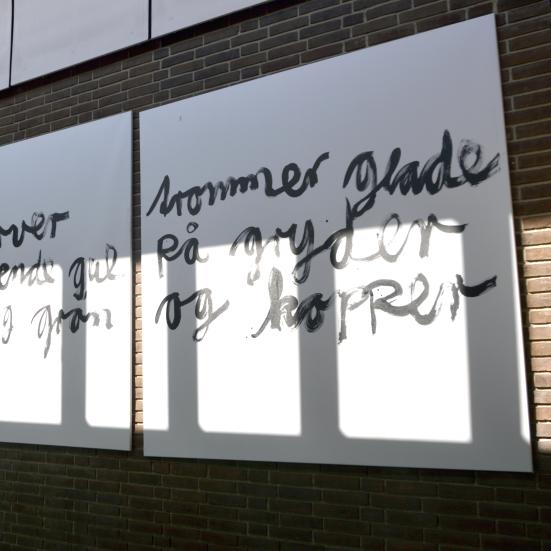 over
ende gul
g grøn
trommer glade
på gryder
og kopper